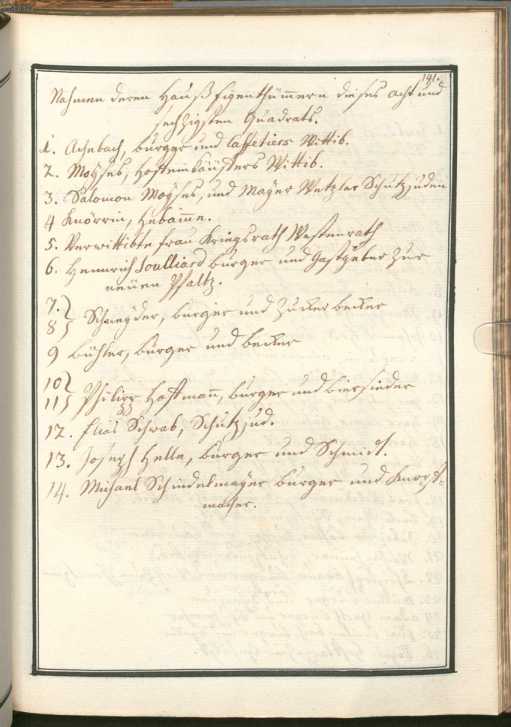 141.
Nahmen deren Hauß Eigenthümmern dieses acht und
sechzigsten Quadrats.
1. Achebach, burger und Caffetiers Wittib.
2. Moÿses, Wittib.
3. Salomon Moÿses, und Maÿer Wetzler Schutzjuden
4 Knörrin, Hebamme.
5. Verwittibte frau Kriegsrath Westenrath
6. Hennrich Soulliard burger und Gastgeber zur
neuen Pfaltz.
7.}
8} Schneÿder, burger und Zuckerbecker
9 Bühler, burger und becker
10}
11} Philipp Hoffmann, burger und biersieder
12. Elias Schwab, Schutzjud.
13. Joseph Helle, burger und Schmidt.
14. Michael Schindelmaÿer burger und
macher.